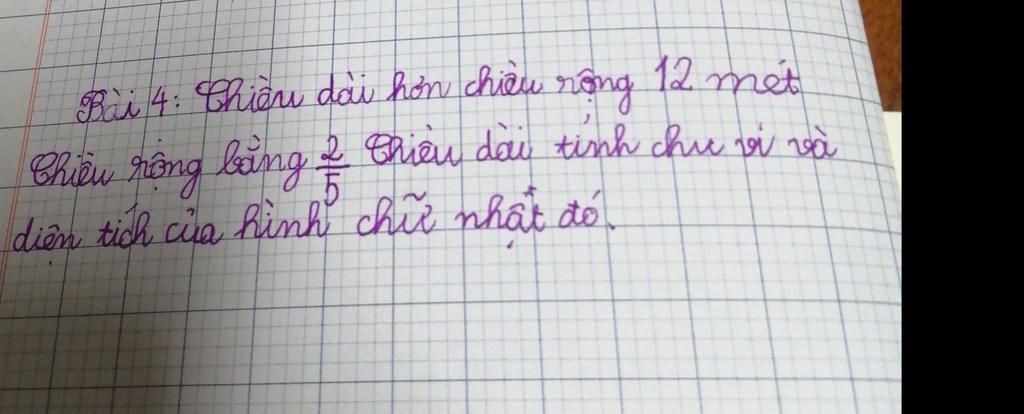 Bài 4: Chiều dài hơn chiều rộng 12 mét
Chiều rộng bằng 2/5 chiều dài tính chu vi và
diện tích của hình chữ nhật đó.